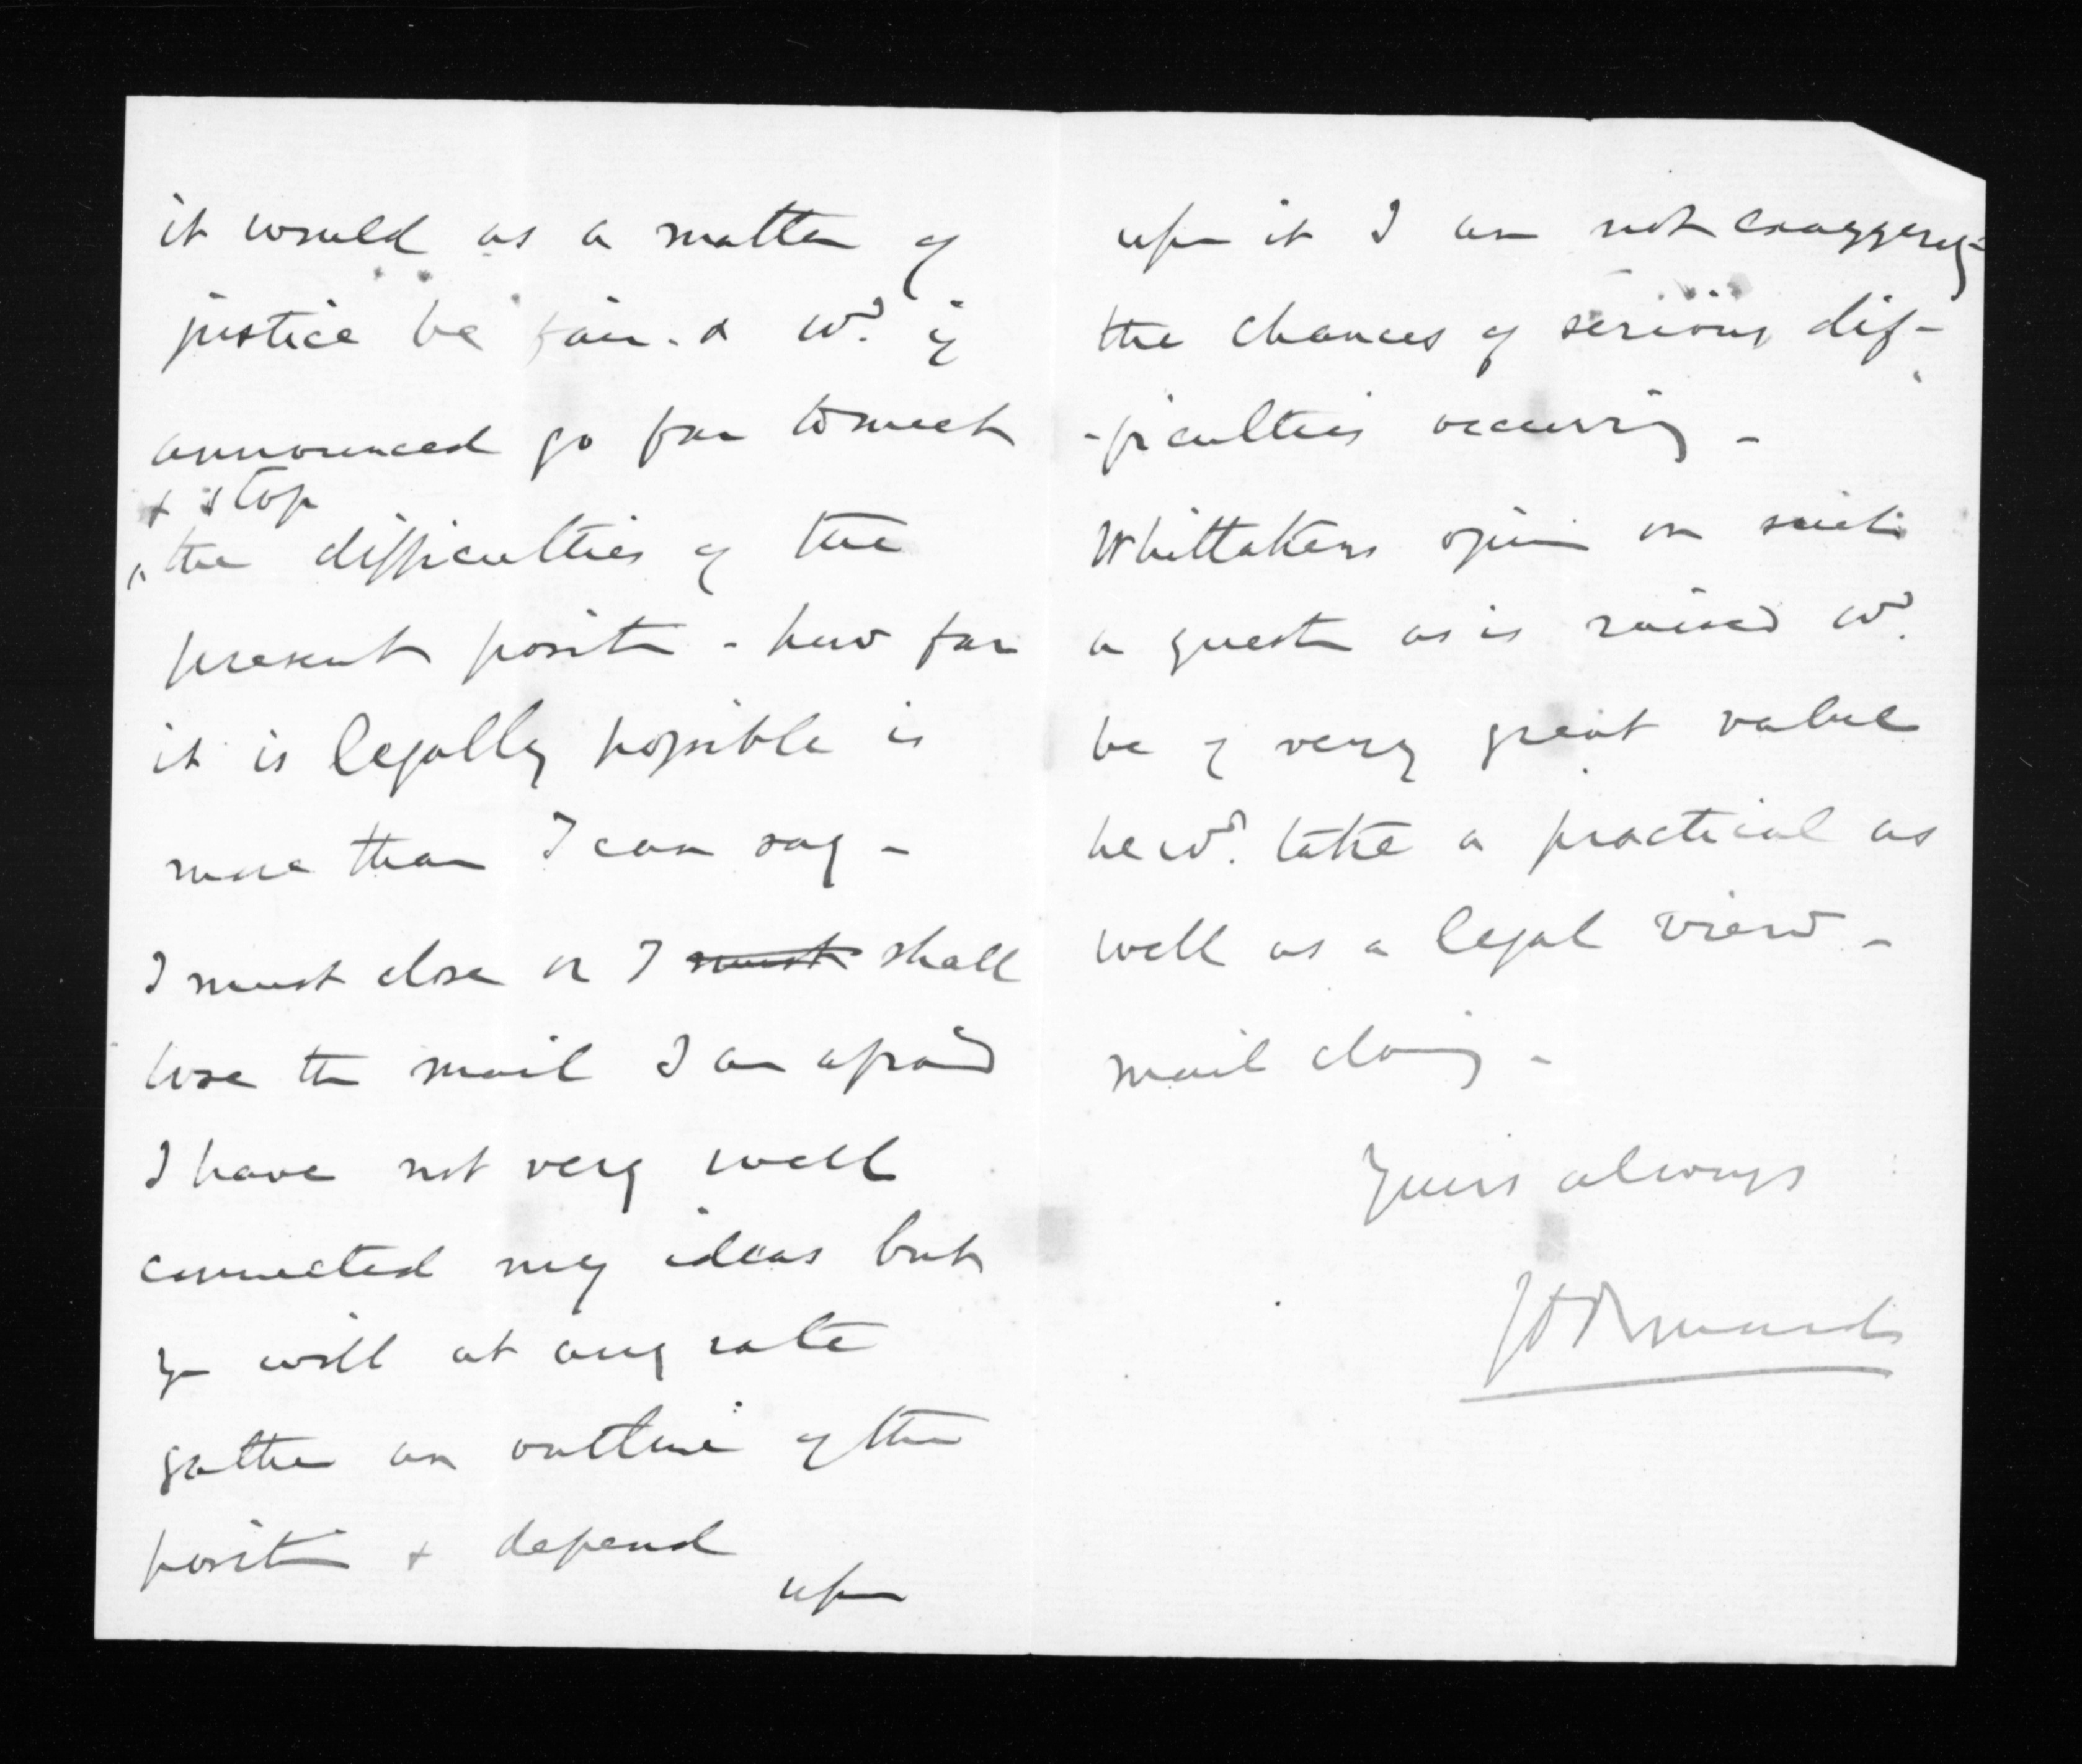 it would as a matter of
justice be fair. & wd. if
announced go far to meet
& stop
the difficulties of the
present positn - how far
it is legally possible is
more than I can say -
I must close or I must shall
lose the mail I am afraid
I have not very well
connected my ideas but
you will at any rate
gather an outline of the
positn & depend
upon
upon it I am not exaggeratg
the chances of serious dif-
-ficulties occurring -
Whittakers opinion on such
a questn as is raised wd.
be of very great value
he wd. take a practical as
well as a legal view -
mail closing -
Yours always